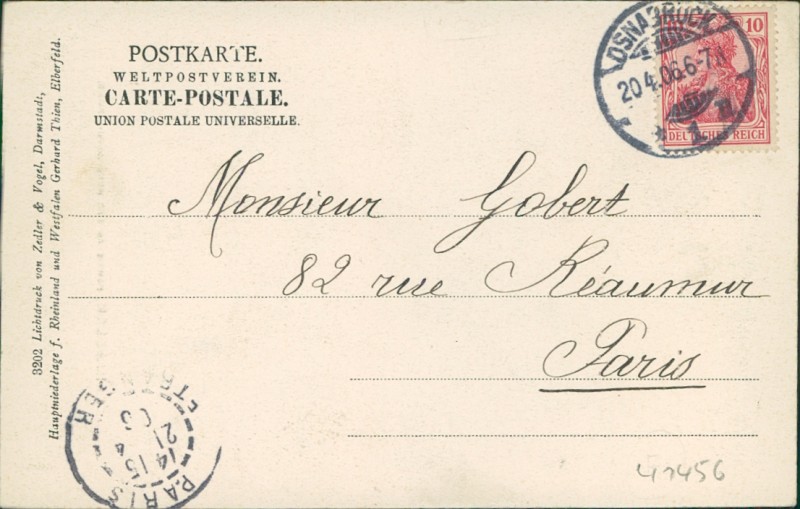 POSTKARTE.
WELTPOSTVEREIN.
CARTE-POSTALE.
UNION POSTALE UNIVERSELLE.
OSNABRÜCK
20.4.06.6-7N
* 1
10
DEUTSCHES REICH
Monsieur Gobert
82 rue Réaumur
Paris
3202 Lichtdruck von Zedler & Vogel, Darmstadt,
Hauptniederlage f. Rheinland und Westfalen Gerhard Thien, Elberfeld.
PARIS
14 15
21 4
06
ETRANGER
41456